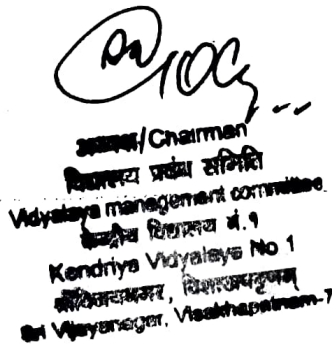 अध्यक्ष/Chairman
विद्यालय प्रबंध समिति
Vidyalaya management committee.
केन्द्रीय विद्यालय नं.१
Kendriya Vidyalaya No 1
श्रीविजयनगर, विशाखापट्टणम्
Sri Vijayanagar, Visakhapatnam-7